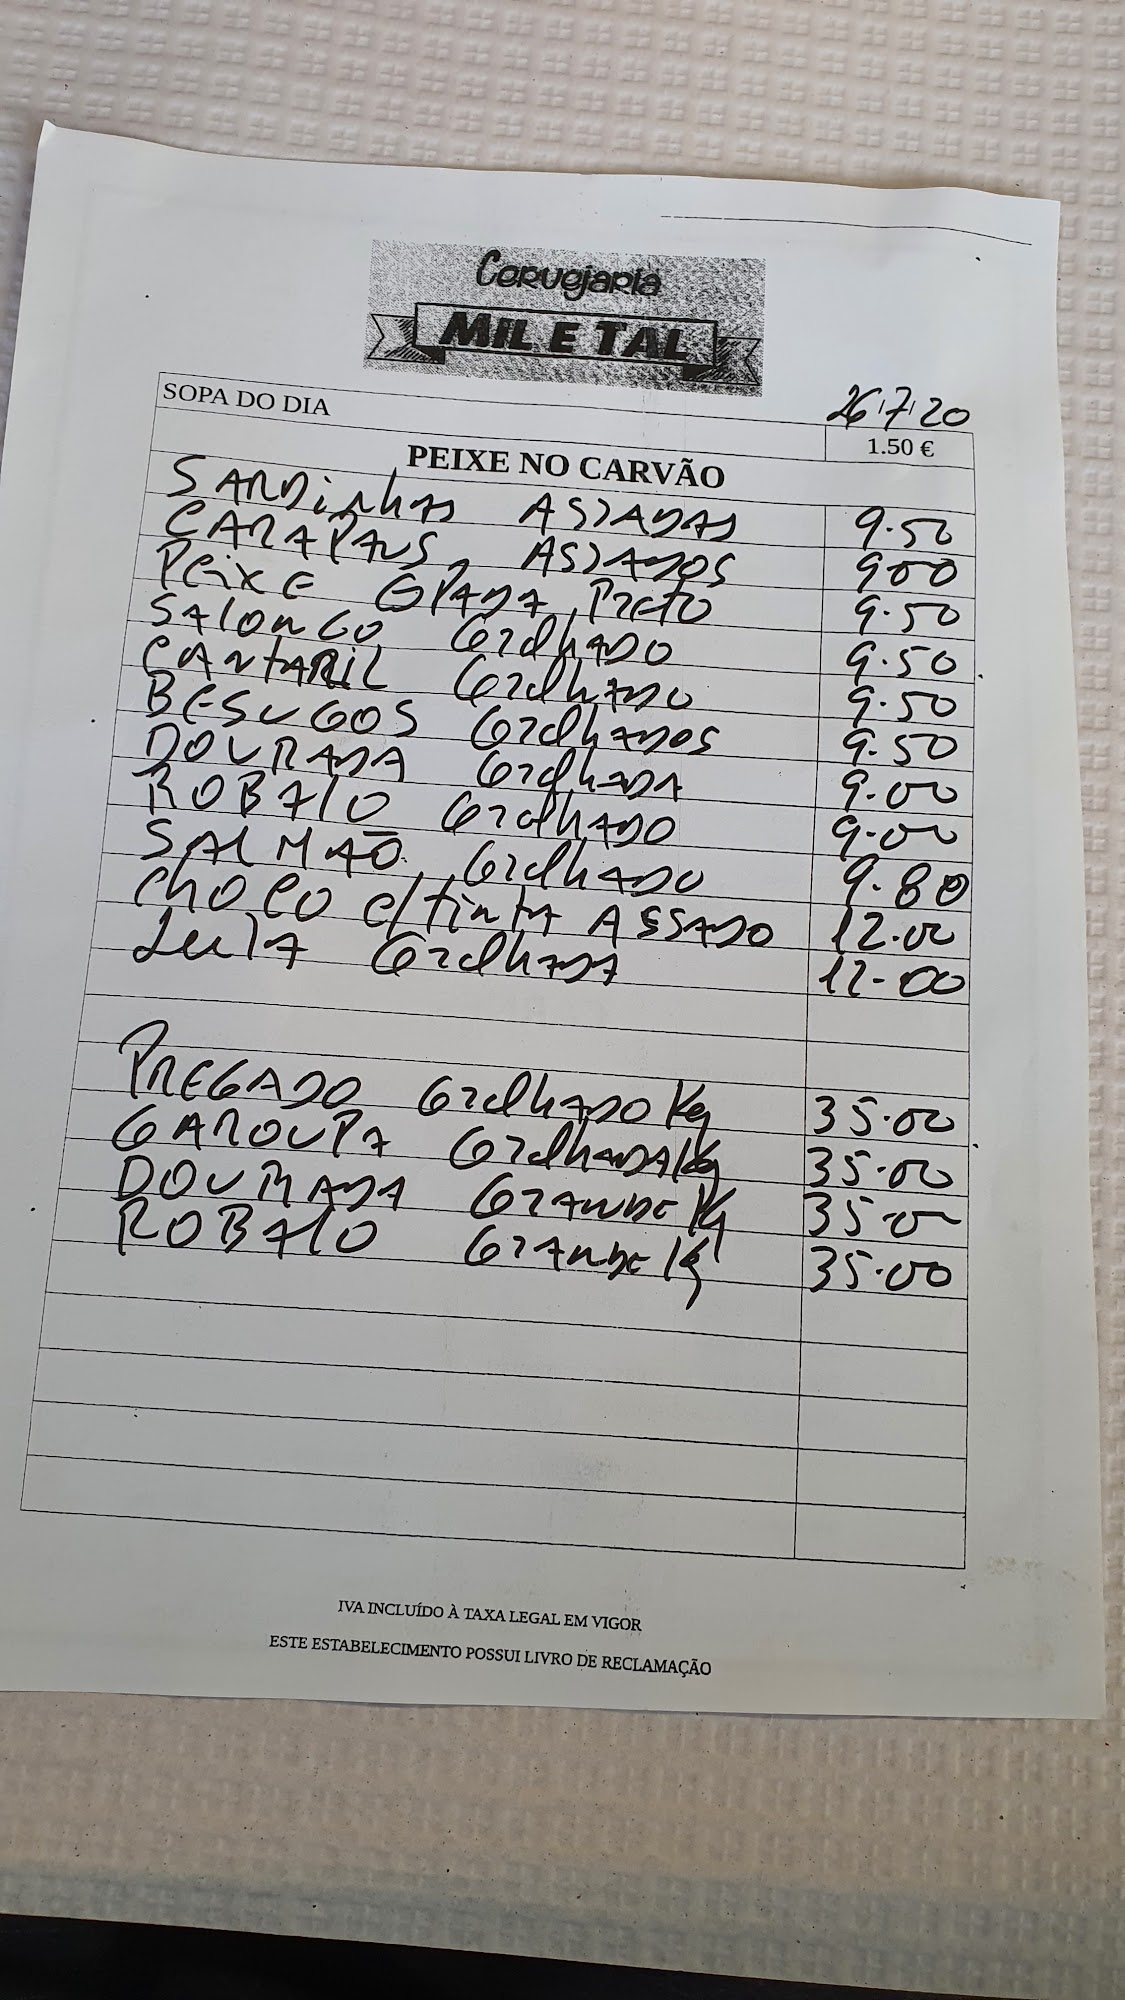 Cervejaria
MIL E TAL
26/7/20
SOPA DO DIA 1.50 €
PEIXE NO CARVÃO
SARDinhAS ASSADAS 9.50
CARAPAUS ASSADOS 900
PEiXE ESPADA PRETO 9.50
SALONGO GRElhADO 9.50
CANtARIL GRElhADO 9.50
BESUGOS GRElhADOS 9.50
DOURADA GRElhADA 9.00
ROBALO GRElhADO 9.00
SALMÃO GRElhADO 9.80
ChOCO c/tintA ASSADO 12.00
LulA GRElhADA 12.00
PREGADO GRElhADO Kg 35.00
GAROUPA GRElhADA Kg 35.00
DOURADA GRANDE Kg 35.00
ROBALO GRANDE Kg 35.00
IVA INCLUÍDO À TAXA LEGAL EM VIGOR
ESTE ESTABELECIMENTO POSSUI LIVRO DE RECLAMAÇÃO